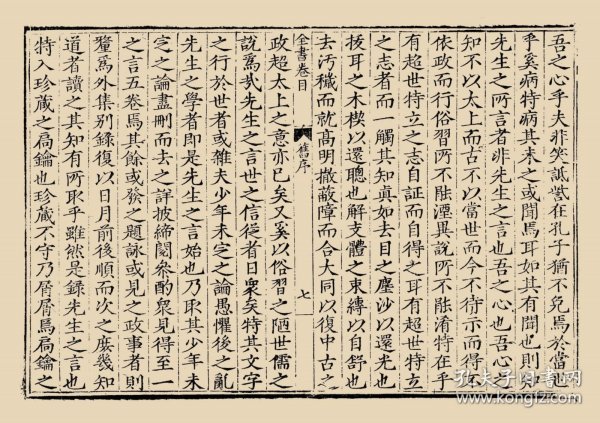 吾之心乎夫非笑詆訾在孔子猶不免焉於當世
乎奚病特病其未之或聞焉耳如其有聞也則知
先生之所言者非先生之言也吾之心也吾心之
知不以太上而古不以當世而今不待示而得
依政而行俗習所不能湮異說所不能淆特在乎
有超世特立之志自証而自得之耳有超世特立
之志者而一觸其知真如去目之塵沙以還光也
拔耳之木楔以還聰也解支體之束縛以自舒也
去汚穢而就高明撤蔽障而合大同以復中古之
全書卷目 舊序 七
政超太上之意亦已矣又奚以俗習之陋世儒之
說爲哉先生之言世之信從者日衆矣特其文字
之行於世者或雜夫少年未定之論愚懼後之亂
先生之學者即是先生之言始也乃取其少年未
定之論盡刪而去之詳披締閱參酌衆見得至一
之言五卷焉其餘或發之題詠或見之政事者則
釐爲外集別錄復以日月前後順而次之庶幾知
道者讀之其知有所取乎雖然是錄先生之言也
特入珍藏之扃鑰也珍藏不守乃屑屑焉扃鑰之
孔夫子旧书网